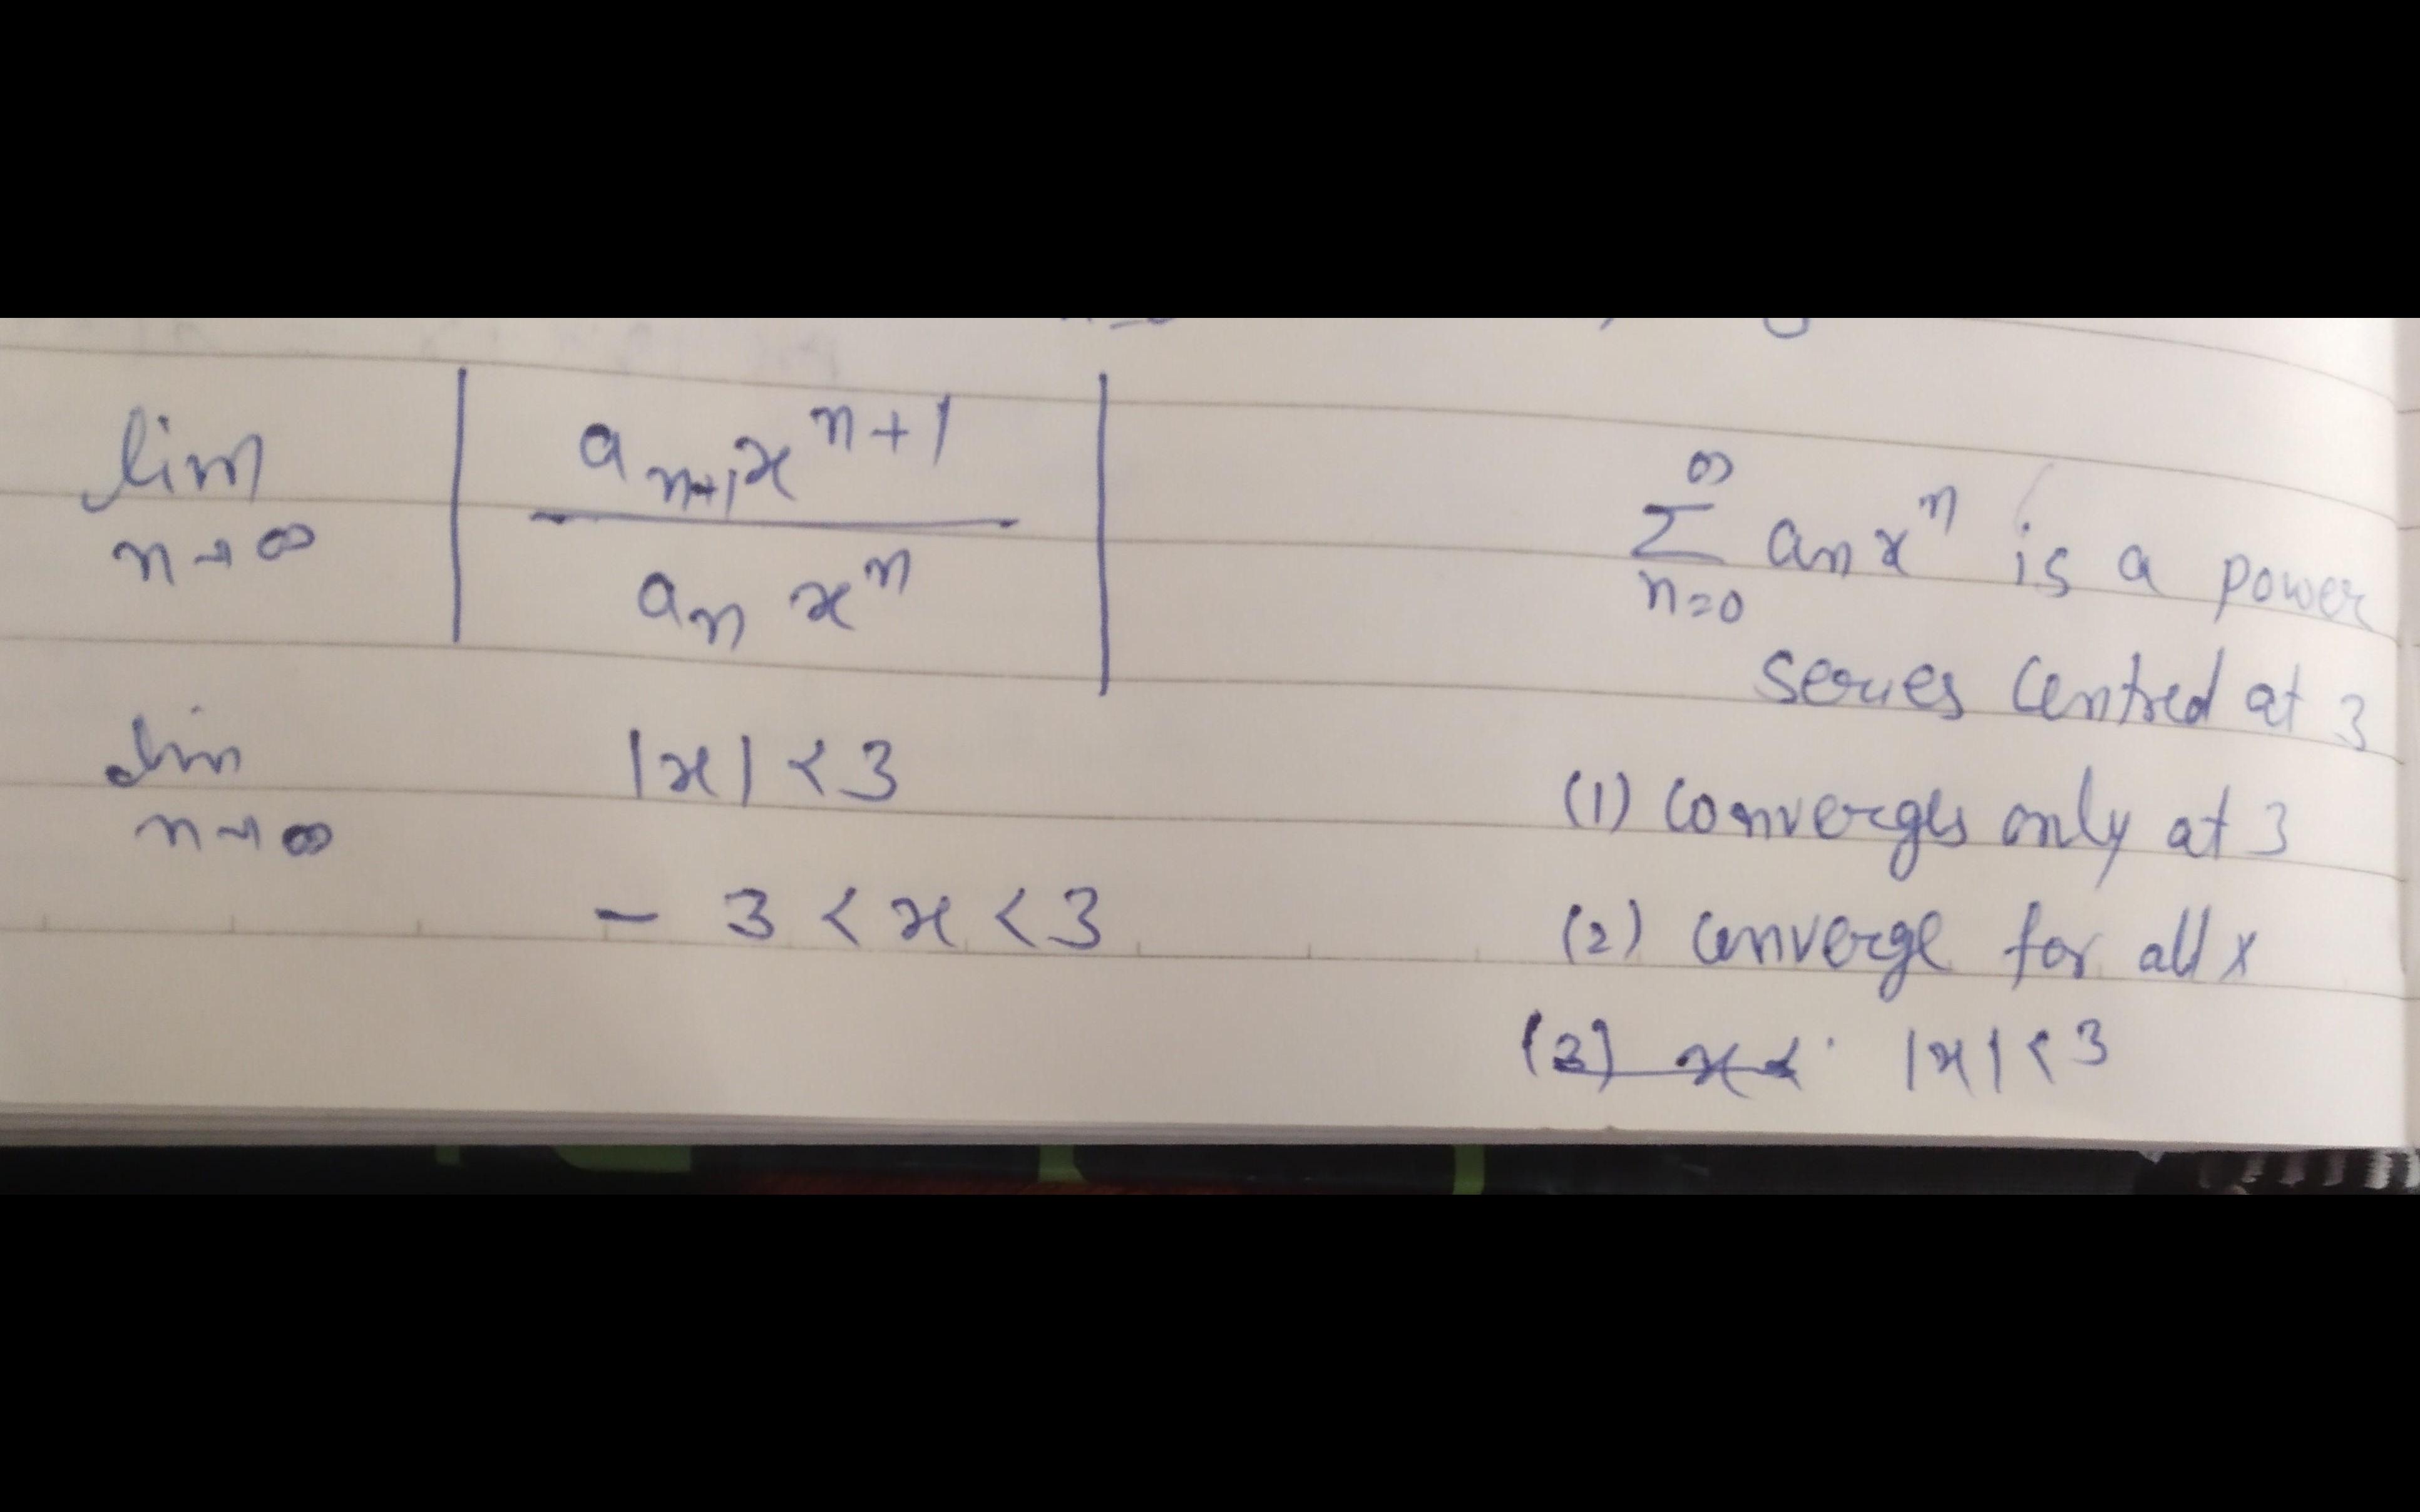 lim n→∞ | a_{n+1} x^{n+1} / a_n x^n |
lim n→∞ |x| < 3
- 3 < x < 3
∑_{n=0}^{∞} a_n x^n is a power
series Centred at 3
(1) Converges only at 3
(2) Converge for all x
(3) x < |x| < 3